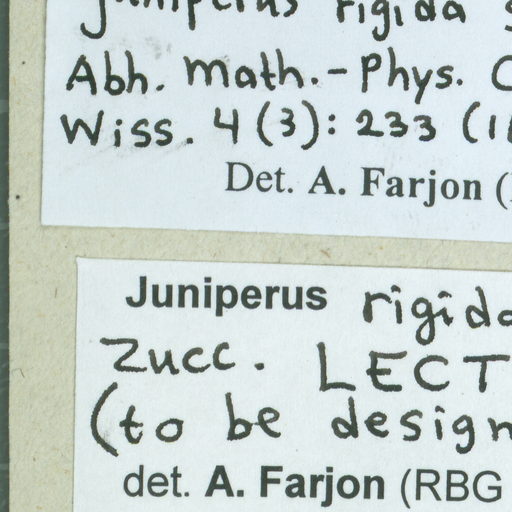 Juniperus rigida
Abh. Math.-Phys.
Wiss. 4(3): 233
Det. A. Farjon (
Juniperus rigida
Zucc. LECT
(to be design
det. A. Farjon (RBG